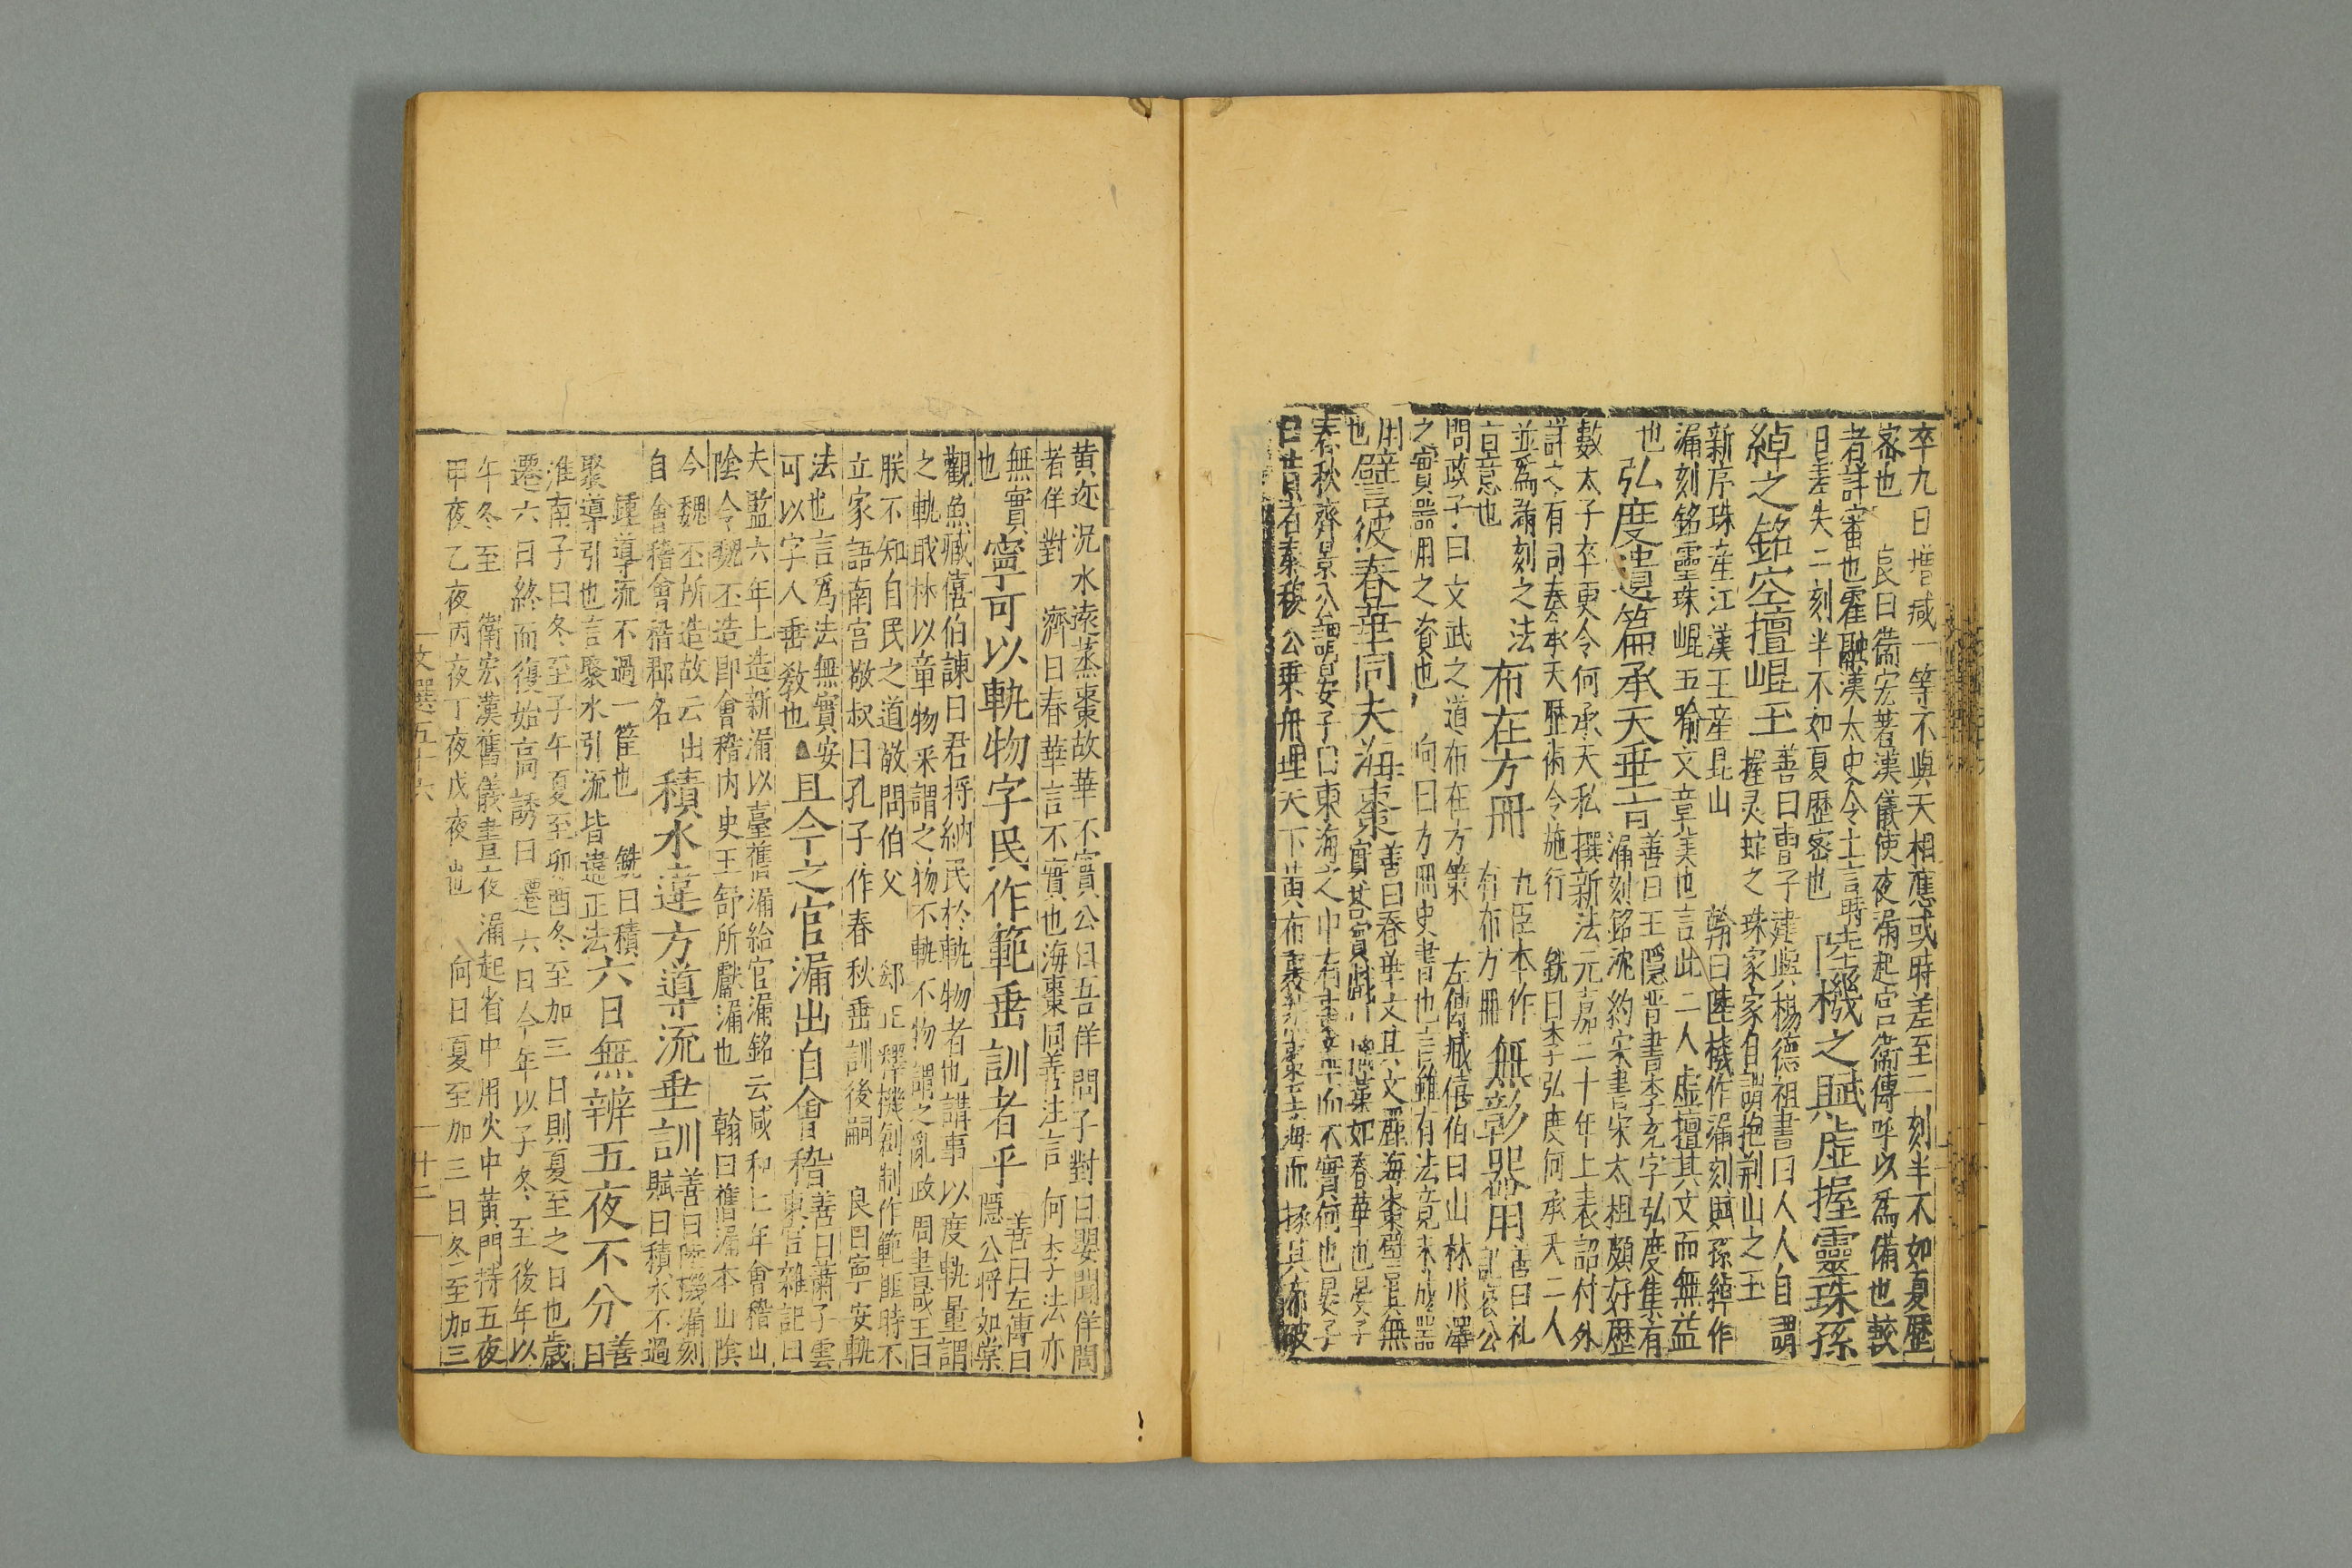 卒九日增减一等不與天相應或時差至二刻半不如夏歷
密也 良曰衞宏著漢儀使夜漏起宮衞傳呼以爲備也較
者詳審也霍融漢太史令上言時
日差失二刻半不如夏歷密也
陸機之賦虛握靈珠孫
綽之銘空擅崐玉
善曰曹子建與楊德祖書曰人人自謂
握灵蛇之珠家家自謂抱荊山之玉
新序珠産江漢玉産昆山 翰曰陸機作漏刻賦孫綽作
漏刻銘靈珠崐玉喻文章美也言此二人虛擅其文而無益
也
弘度遺篇承天垂旨
善曰王隱晋書李充字弘度集有
漏刻銘沈約宋書宋太祖頗好歷
數太子卒更令何承天私撰新法元嘉二十年上表詔付外
詳之有司奏承天歷術令施行 銑曰李弘度何承天二人
並爲漏刻之法
旨意也
布在方冊
九臣本作
有布方冊
無彰器用
善曰礼
記哀公
問政子曰文武之道布在方策 左傳臧僖伯曰山林川澤
之實器用之資也 向曰方冊史書也言雖有法竟未成器
用
也
譬彼春華同夫海棗
善曰春華文其文麗海棗譬其無
實其荅賓戲 摛藻如春華也晏子
春秋齊景公謂晏子曰東海之中有棗華而不實何也晏子
曰昔者秦穆公乘舟理天下黄布裹蒸棗至海而拯其布破
黄迩況水遠蒸棗故華不實公曰吾佯問子對曰嬰聞佯問
者佯對 濟曰春華言不實也海棗同善注言何李法亦
無實
也
寧可以軌物字民作範垂訓者乎
善曰左傳曰
隱公將如棠
觀魚臧僖伯諫曰君將納民於軌物者也講事以度軌量謂
之軌取材以章物采謂之物不軌不物謂之亂政周書成王曰
朕不知字民之道敬問伯父 郄正釋機創制作範匪時不
立家語南宮敬叔曰孔子作春秋垂訓後嗣 良曰寧安軌
法也言爲法無實安
可以字人垂敎也
且今之官漏出自會稽
善曰蕭子雲
東宮雜記曰
夫監六年上造新漏以臺舊漏給官漏銘云咸和七年會稽山
陰令魏丕造即會稽内史王舒所獻漏也 翰曰舊漏本山陰
今魏丕所造故云出
自會稽會稽郡名
積水違方導流乖訓
善曰陸機漏刻
賦曰積水不過
鍾導流不過一筐也 銑曰積
聚導引也言聚水引流皆違正法
六日無辨五夜不分
善
曰
淮南子曰冬至子午夏至卯酉冬至加三日則夏至之日也歲
遷六日終而復始高誘曰遷六日今年以子冬至後年以
午冬至 衛宏漢舊儀晝夜漏起省中用火中黄門持五夜
甲夜乙夜丙夜丁夜戊夜也 向曰夏至加三日冬至加三
文選五十六
廿二